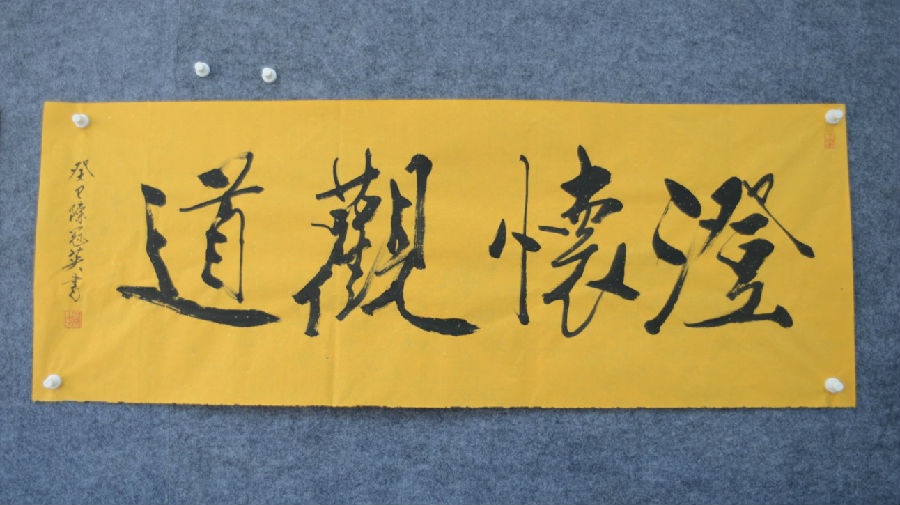 澄懷觀道
癸巳陳冠英書